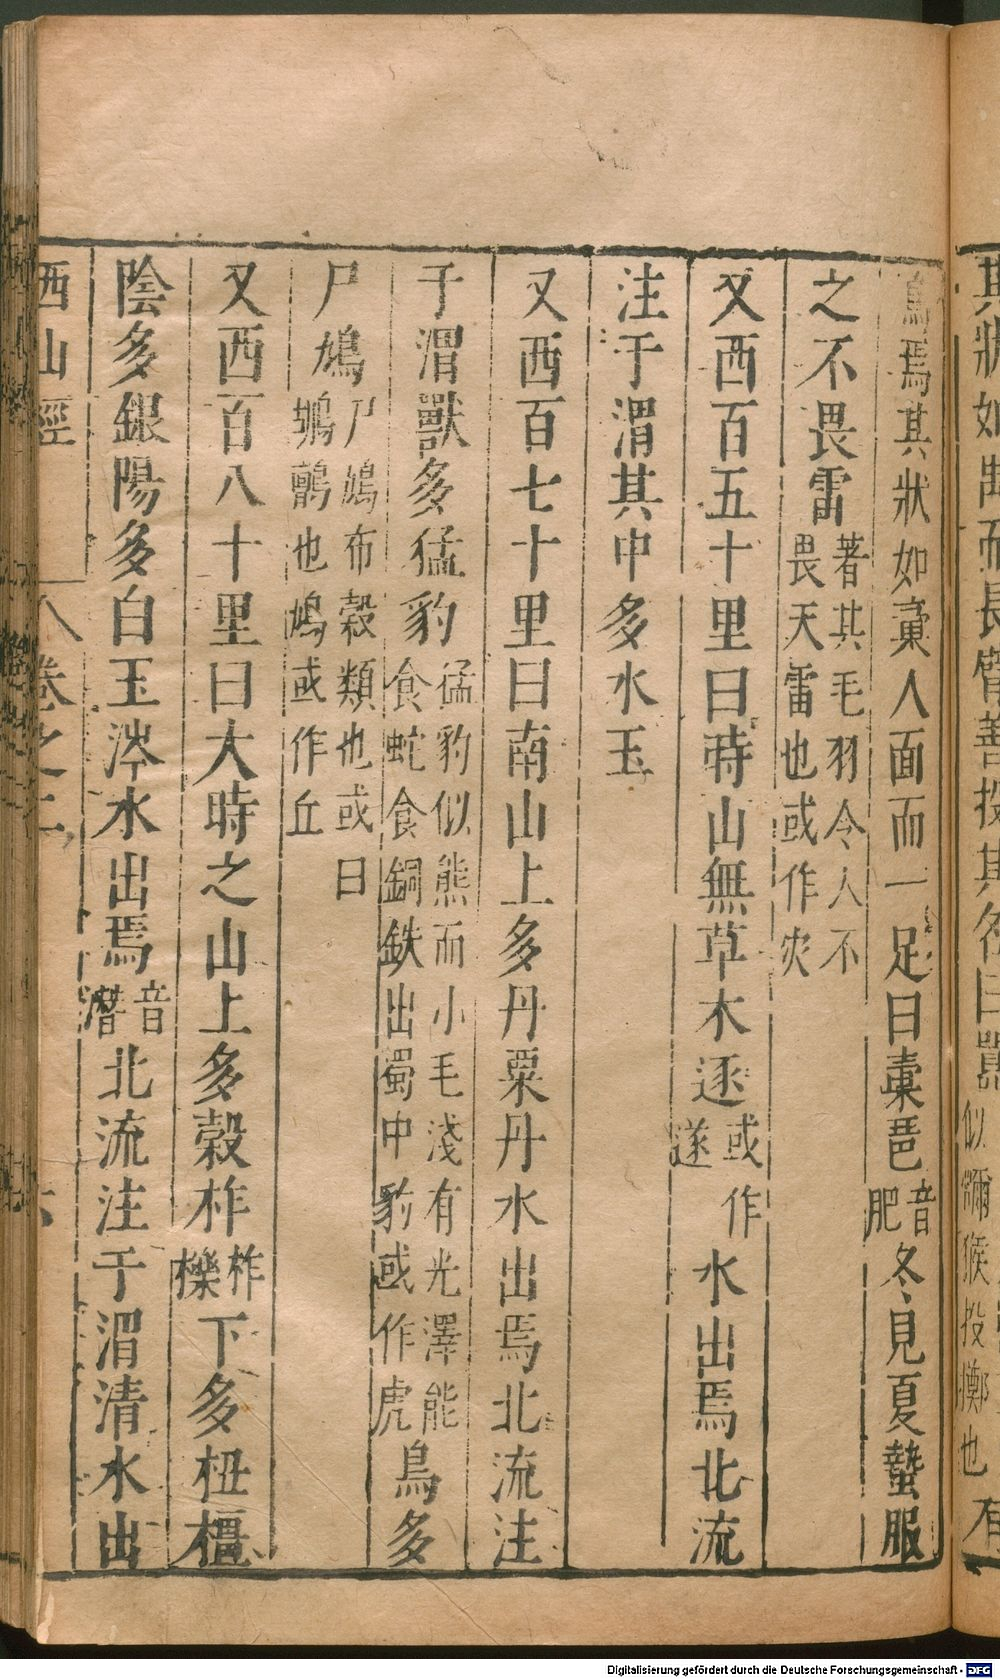 其狀如禺而長臂善投其名曰囂似獼猴投擲也有
鳥焉其狀如梟人面而一足曰橐𩇯音肥冬見夏蟄服
之不畏雷著其毛羽令人不畏天雷也或作災
又西百五十里曰時山無草木逐或作遂水出焉北流
注于渭其中多水玉
又西百七十里曰南山上多丹粟丹水出焉北流注
于渭獸多猛豹猛豹似熊而小毛淺有光澤能食蛇食銅鉄出蜀中豹或作虎鳥多
尸鳩尸鳩布穀類也或曰鶻鵃也鳩或作丘
又西百八十里曰大時之山上多榖柞柞櫟下多杻橿
陰多銀陽多白玉涔水出焉音潛北流注于渭清水出
西山經 卷之二 六
Digitalisierung gefördert durch die Deutsche Forschungsgemeinschaft - DFG